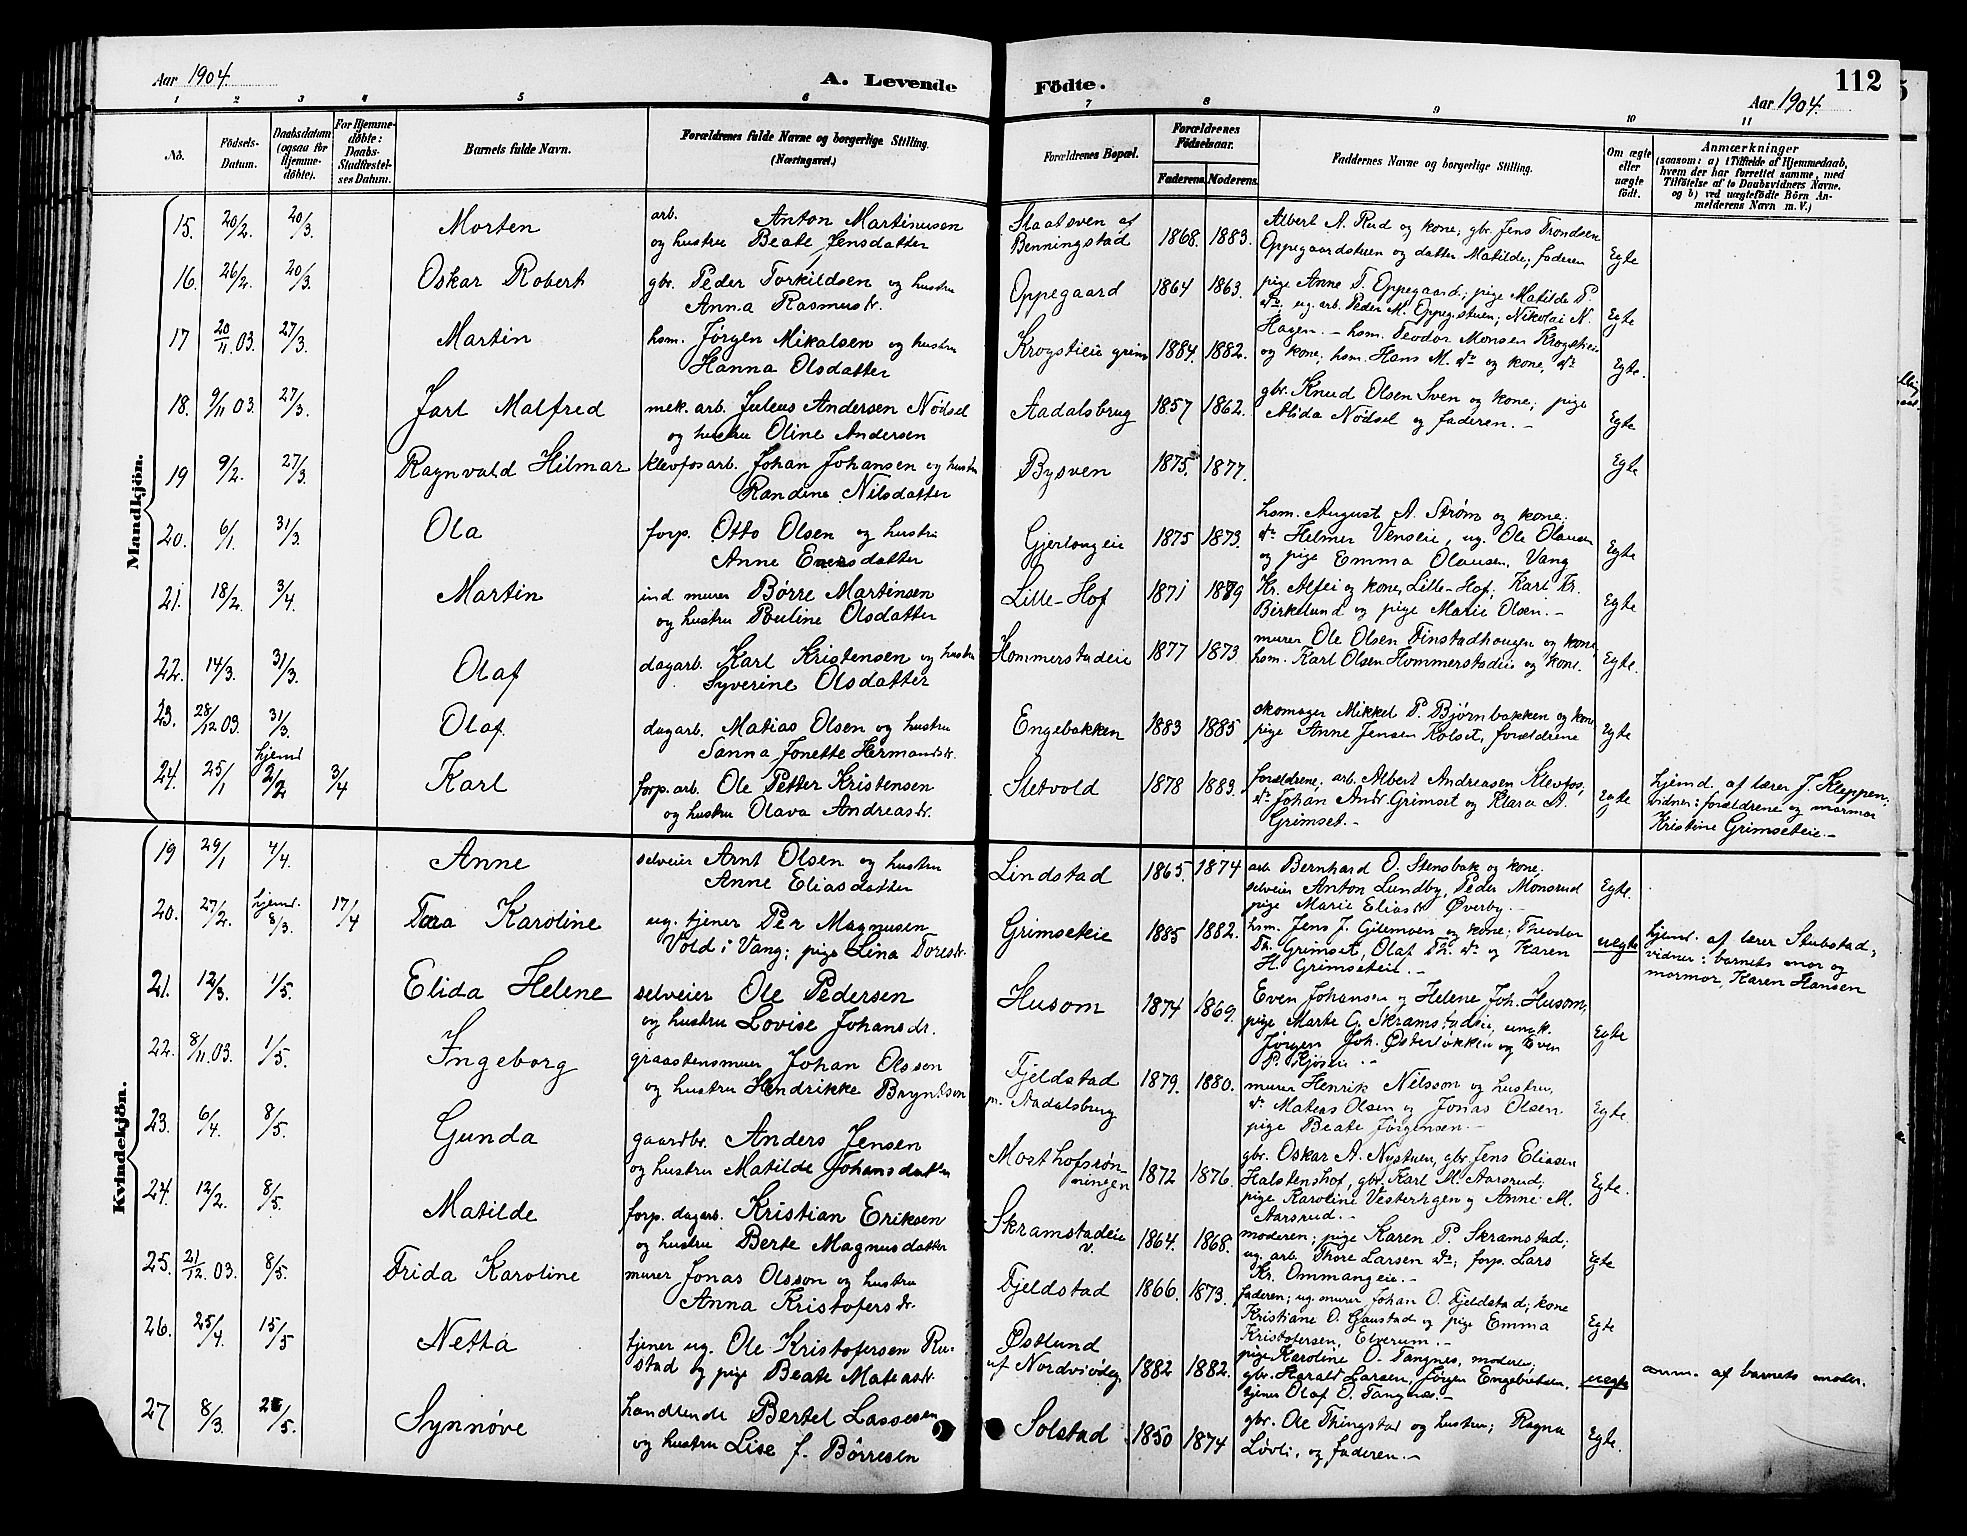 Aar 1904.
A. Levende
Fødte.
112
Aar 1904.
1 2 3 4 5 6 7 8 9 10 11
No.
Födsels-Datum.
Daabsdatum (ogsaa for Hjemmedöbte).
For Hjemmedöbte: Daabs-Stadfæstelses Datum.
Barnets fulde Navn.
Forældrenes fulde Navne og borgerlige Stilling. (Næringsvei.)
Forældrenes Bopæl.
Forældrenes Födselsaar.
Faderens. Moderens.
Faddernes Navne og borgerlige Stilling.
Om ægte eller uægte födt.
Anmærkninger
(saasom: a) i Tilfælde af Hjemmedaab, hvem der har forrettet samme, med Tilföielse af to Daabsvidners Navne. og b) ved uægtefödte Börn Anmelderens Navn m. V.)
Mandkjön.
15. 20/2. 20/3. Morten arb. Anton Martinusen
og hustru Beate Jensdatter
Staatsven af Benningstad 1868. 1883.
Albert A. Rud og kone; gbr. Jens Trondsen
Oppegaardstuen og datter Matilde; faderen Egte
16. 26/2. 20/3. Oskar Robert gbr. Peder Torkildsen og hustru
Anna Rasmusdr.
Oppegaard 1864 1863.
pige Anne T. Oppegaard; pige Matilde P.
do; ug. arb. Peder M. Oppegstuen; Nikolai N.
Hagen.- Egte
17 20/11.03. 27/3. Martin hsm. Jørgen Mikalsen og hustru
Hanna Olsdatter
Krogstieie grim 1884. 1882.
hsm. Teodor Monsen Krogstieie
og kone; hsm. Hans M. do og kone, do Egte.
18. 9/11 03. 27/3. Jarl Malfred mek. arb. Julius Andersen Nødsel
og hustru Oline Andersen
Aadalsbrug 1857 1862.
gbr. Knud Olsen Sven og kone; pige
Alida Nødsel og faderen.- Egte
19 9/2. 27/3. Ragnvald Hilmar Klevfosarb. Johan Johansen og hustru
Randine Nilsdatter
Bysven 1875. 1877. Egte
20. 6/1. 31/3. Ola forp. Otto Olsen og hustru
Anne Evensdatter
Gjerlougeie 1875 1873.
hsm. August A. Strøm og kone;
do Helmer Venseie, ug. Ole Olausen
og pige Emma Olausen, Vang Egte
21. 18/2. 3/4. Martin ind murer Børre Martinsen
og hustru Pauline Olsdatter
Lille-Hof 1871 1879
Kr. Alfei og kone, Lille-Hof; Karl Kr.
Birkelund og pige Marie Olsen.- Egte
22. 14/3. 31/3. Olaf dagarb. Karl Kristensen og hustru
Syverine Olsdatter
Hommerstadeie 1877 1873.
murer Ole Olsen Finstadhaugen og kone
hsm. Karl Olsen Hommerstadeie og kone. Egte.
23. 28/12 03. 31/3. Olaf dagarb. Matias Olsen og hustru
Sanna Jonette Hermandsdr.
Engebakken 1883 1885
skomager Mikkel P. Bjørnbakken og kone
pige Anne Jensen Kolset, forældrene Egte
24. 25/1 hjemd 2/2 3/4 Karl forp. arb. Ole Petter Kristensen
og hustru Olava Andreasdr.
Sletvold 1878 1883.
forældrene; arb. Albert Andreasen Klevfos,
do Johan Andr. Grimset og Klara A.
Grimset.- Egte
hjemd. af lærer J. Kleppen.
vidner: forældrene og mormor
Kristine Grimseteie.-
Kvindekjön.
19 29/1 4/4. Anne selveier Arnt Olsen og hustru
Anne Eliasdatter
Lindstad 1865. 1874
arb Bernhard O. Stensbak og kone;
selveier Anton Lundby, Peder Monsrud
pige Marie Eliasdr Øverby.- Egte.
20. 27/2. hjemd. 8/3. 17/4 Tora Karoline ug. tjener Per Magnusen
Vold i Vang; pige Lina Toresdr.
Grimseteie 1885 1882.
hsm. Jens J. Gilemoen og kone; Theodor
Th. Grimset, Olaf Th. do og Karen
H. Grimseteie.- uegte
hjemd. af lærer Stubstad,
vidner: barnets mor og
mormor, Karen Hansen
21. 12/3. 1/5. Elida Helene selveier Ole Pedersen
og hustru Lovise Johansdr.
Husom 1874 1869.
Even Johansen og Helene Joh. Husom,
pige Marte G. Skramstadeie, ungk.
Jørgen Joh. Østerløkken og Even
P. Kjøseie.- Egte
22. 8/11.03. 1/5. Ingeborg graastensmurer Johan Olsson
og hustru Hendrikke Bryntson
Fjeldstad
pr. Aadalsbrug 1879. 1880.
murer Henrik Nilsson og hustru,
do Matias Olsen og Jonas Olsen
pige Beate Jørgensen.- Egte.
23. 6/4. 8/5. Gunda gaardbr. Anders Jensen
og hustru Matilde Johansdatter
Morthofsrønningen 1872 1876.
gbr. Oskar A. Nystuen, gbr. Jens Eliasen
Halstenshof, gbr. Karl M. Aarsrud;
pige Karoline Vesterhgen og Anne M.
Aarsrud.- Egte.
24. 12/2. 8/5. Matilde forp. dagarb. Kristian Eriksen
og hustru Berte Magnusdatter
Skramstadeie v. 1864. 1868.
moderen; pige Karen P. Skramstad;
ug. arb. Thore Larsen do; forp. Lars
Kr. Ommangeie.- Egte
25. 21/12. 03. 8/5. Frida Karoline murer Jonas Olsson og hustru
Anna Kristofersdr.
Fjeldstad 1866. 1873.
faderen; ug. murer Johan O. Fjeldstad; kone
Kristiane O. Gaustad og pige Emma
Kristofersen, Elverum.- Egte
26. 25/4. 15/5 Netta tjener ug. Ole Kristofersen Rustad
og pige Beate Matiasdr.
Østlund
af Nordviødeg. 1882 1882.
pige Karoline O. Tangnes, moderen;
gbr. Harald Larsen, Jørgen Engebretsen,
tjener Olaf O. Tangnæs.- uegte
anm. af barnets moder.
27 8/3. 25/5. Synnøve handlende Bertel Lassesen
og hustru Lise f. Børresen
Solstad 1850 1874
gbr. Ole Thingstad og hustru; Ragna
Løvli, og faderen.- Egte.